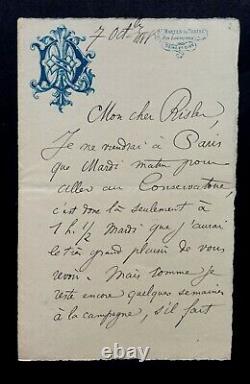 7 Oct
Mon cher Risler,
Je ne viendrai à Paris
que Mardi matin pour
aller au Conservatoire,
c'est donc là seulement à
1 h. ½ Mardi que j'aurai
le très grand plaisir de vous
revoir. Mais comme je
reste encore quelques semaines
à la campagne, s'il fait